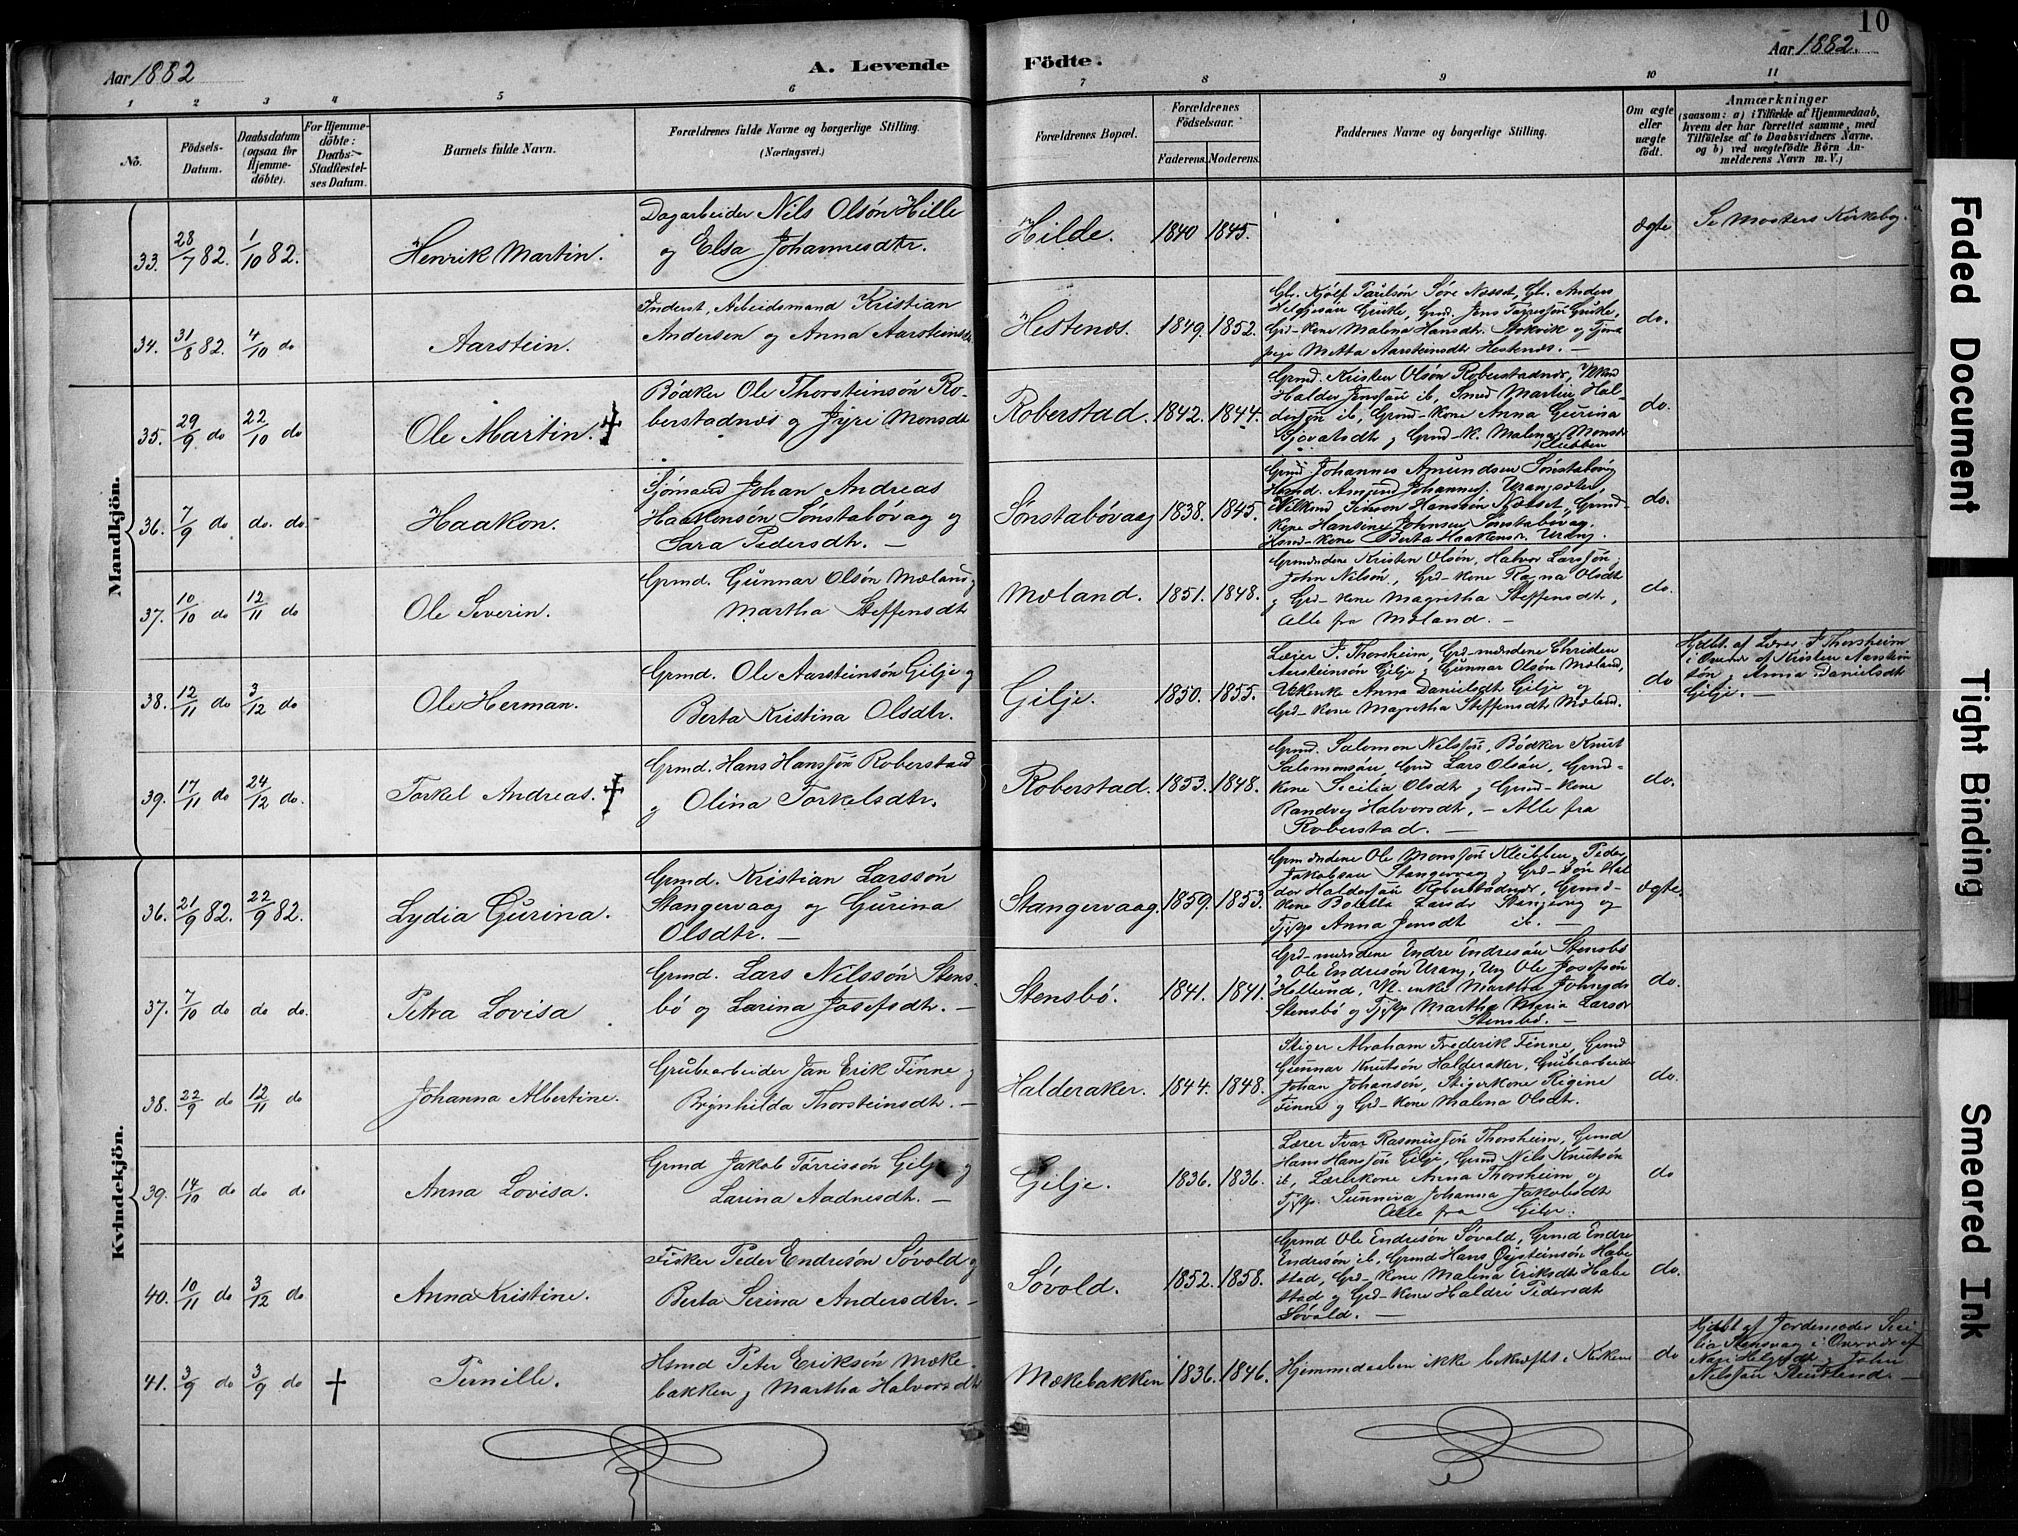 10
Aar 1882
A. Levende Födte.
Aar 1882.
1 2 3 4 5 6 7 8 9 10 11
No.
Födsels-Datum.
Daabsdatum (ogsaa for Hjemme-döbte).
For Hjemme-döbte: Daabs-Stadfæstel-ses Datum.
Barnets fulde Navn.
Forældrenes fulde Navne og borgerlige Stilling. (Næringsvei.)
Forældrenes Bopæl.
Forældrenes Födselsaar.
Faderens. Moderens.
Faddernes Navne og borgerlige Stilling.
Om ægte eller uægte födt.
Anmærkninger
(saasom: a) i Tilfælde af Hjemmedaab, hvem der har forrettet samme, med Tilföielse af to Daabsvidners Navne. og b) ved uægtefödte Börn An-melderens Navn m. V.)
Mandkjön.
33. 28/7 82. 1/10 82. Henrik Martin.
Dagarbeider Nils Olsön Hille
og Elsa Johannesdtr.
Hilde. 1840 1845. ægte Se Mosters Kirkebog.
34. 31/8 82. 4/10 do Aarstein.
Inderst, Arbeidsmand Kristian
Andersen og Anna Aarsteinsdtr
Hestenæs. 1849. 1852.
Grd-kone Malena Hansdtr. Stokvik og
pige Metta Aarsteinsdt Hestenæs. —
do.
35. 29/9 do 22/10 do Ole Martin. †
Bödker Ole Thorsteinsön Ro-
berstadnæs og Jyri Monsdt
Roberstad. 1842. 1844.
Grmd. Kristen Olsön Roberstadnæs,
Halder Jenssön ib, Smed Martin Hal-
dersön ib, Grmd-kone Anna Gurina
Grmd-K. Malena Monsdr
Klubben
do.
36. 7/9 do do. do. Haakon.
Sjömand Johan Andreas
Haakonsön Sönstabövaag og
Sara Pedersdtr. —
Sönstabövaag 1838. 1845.
Grmd. Johannes Amundsen Sönstabövaag
Ungkmd Simon Hansön Grmd-
kone Hansine Johnsen Sönstabövaag.
Hsmd-kone Berta Haakensdr. Urang.
do.
37. 10/10 do 12/11 do Ole Severin.
Grmd. Gunnar Olsön Mæland og
Martha Steffensdtr
Mæland. 1851. 1848.
Grmændene Kristen Olsön, Halvor Larssön,
John Nilsön, Grd-kone Ragna Olsdt
og Grd-kone Magretha Steffensdt,
Alle fra Mæland. —
do.
38. 12/11 do 3/12 do Ole Herman.
Grmd. Ole Aarsteinsön Gilje og
Berta Kristina Olsdtr.
Gilje. 1850. 1855.
Lærer I. Thorsheim, Grd-mændene Christen
Aarsteinsön Gilje og Gunnar Olsön Mæland,
Anna Danielsdt Gilje og
Grd-kone Magretha Steffensdt Mæland.
do
Hjdbt. af Lærer I Thorsheim
i Overvær af Kristen Aarstein
sön og Anna Danielsdt
Gilje. —
39. 17/11 do 24/12 do. Torkel Andreas. †
Grmd. Hans Hanssön Roberstad
og Olina Torkelsdtr.
Roberstad. 1853. 1848.
Grmd. Salomon Nilssön, Bödker Knut
Salomonsön Grmd Lars Olsön, Grmd-
kone Secilia Olsdt og Grmd-kone
Randvei Halvorsdt. — Alle fra
Roberstad. —
do.
Kvindekjön.
36. 21/9 82. 22/9 82. Lydia Gurina.
Grmd. Kristian Larssön
Stangervaag og Gurina
Olsdtr. —
Stangervaag. 1859. 1853.
Grmændene Ole Monssön Klubben, Peder
Jakobsen Stangervaag og Grd-sön Hal-
dor Haldorsön Roberstadnæs, Grmd-
kone Boletta Larsdr og
Anna Jensdt ib. —
ægte.
37. 7/10 do do do. Petra Lovisa
Grmd. Lars Nilssön Stens-
bö og Larina Josefsdtr. —
Stensbö. 1841. 1841.
Grd-mændene Endre Endresön Stensbö
Ole Endresön Urang, Ung Ole Josefsön
Stensbö og Martha Maria Larsdr
Stensbö. —
do.
38. 22/9 do 12/11 do Johanna Albertine.
Grubearbeider Jan Erik Finne og
Brynhilda Thorsteinsdtr. —
Halderaker. 1844. 1848.
Stiger Abraham Frederik Finne, Grmd
Gunnar Knutsön Halderaker, Grubearbeider
Johan Johansön, Stigerkone Regine
Finne og Grd-kone Malena Olsdt.
do.
39. 14/10 do do do Anna Lovisa.
Grmd Jakob Törrissön Gilje og
Larina Aadnesdtr. —
Gilje. 1836. 1836.
Lærer Ivar Rasmussön Thorsheim, Grmd
Hans Hanssön Gilje, Grmd Nils Knutsön
ib, Lærerkone Anna Thorsheim og
Sunniva Johanna Jakobsdt
Alle fra Gilje.
do
40. 10/11 do 3/12 do Anna Kristine.
Fisker Peder Endresön Sövold og
Berta Serina Andersdtr. —
Sövold. 1852. 1858.
Grmd Ole Endresön Sövold, Grmd Endre
Endresön ib, Grmd Hans Öysteinsön Habe
stad, Grd-kone Malena Eriksdt Habe
stad og Grd-kone Haldri Pedersdt
Sövold. —
do.
41. 3/9 do 3/9 do † Pernille.
Hsmd Peter Eriksön Mæke-
bakken og Martha Halvorsdt
Mækebakken 1836. 1846. Hjemmedaaben ikke bekræftet i Kirken do
Hjdbt af Jordemoder Seci
lia Stensvag i Overvær af
og John
Nilssön
Faded Document
Tight Binding
Smeared Ink